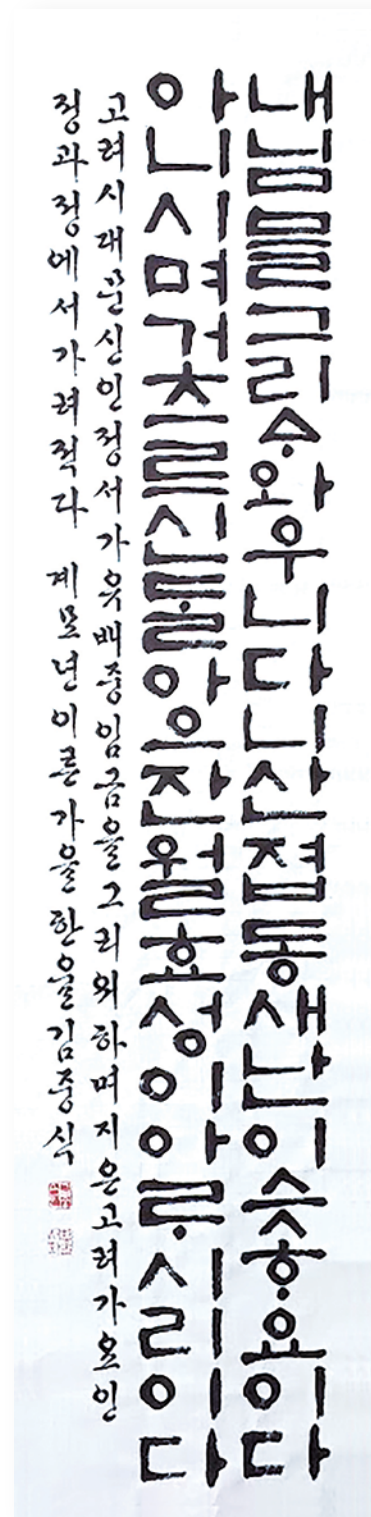 내님믈그리ᅀᆞ와우니다니산졉동새난이슷ᄒᆞ요이다
아니시며거츠르신ᄃᆞᆯ아으잔월효성이아ᄅᆞ시리이다
고려시대문신인정서가유배중임금을그리워하며지은고려가요인
정과정에서가려적다 계묘년이른가을한울김중식